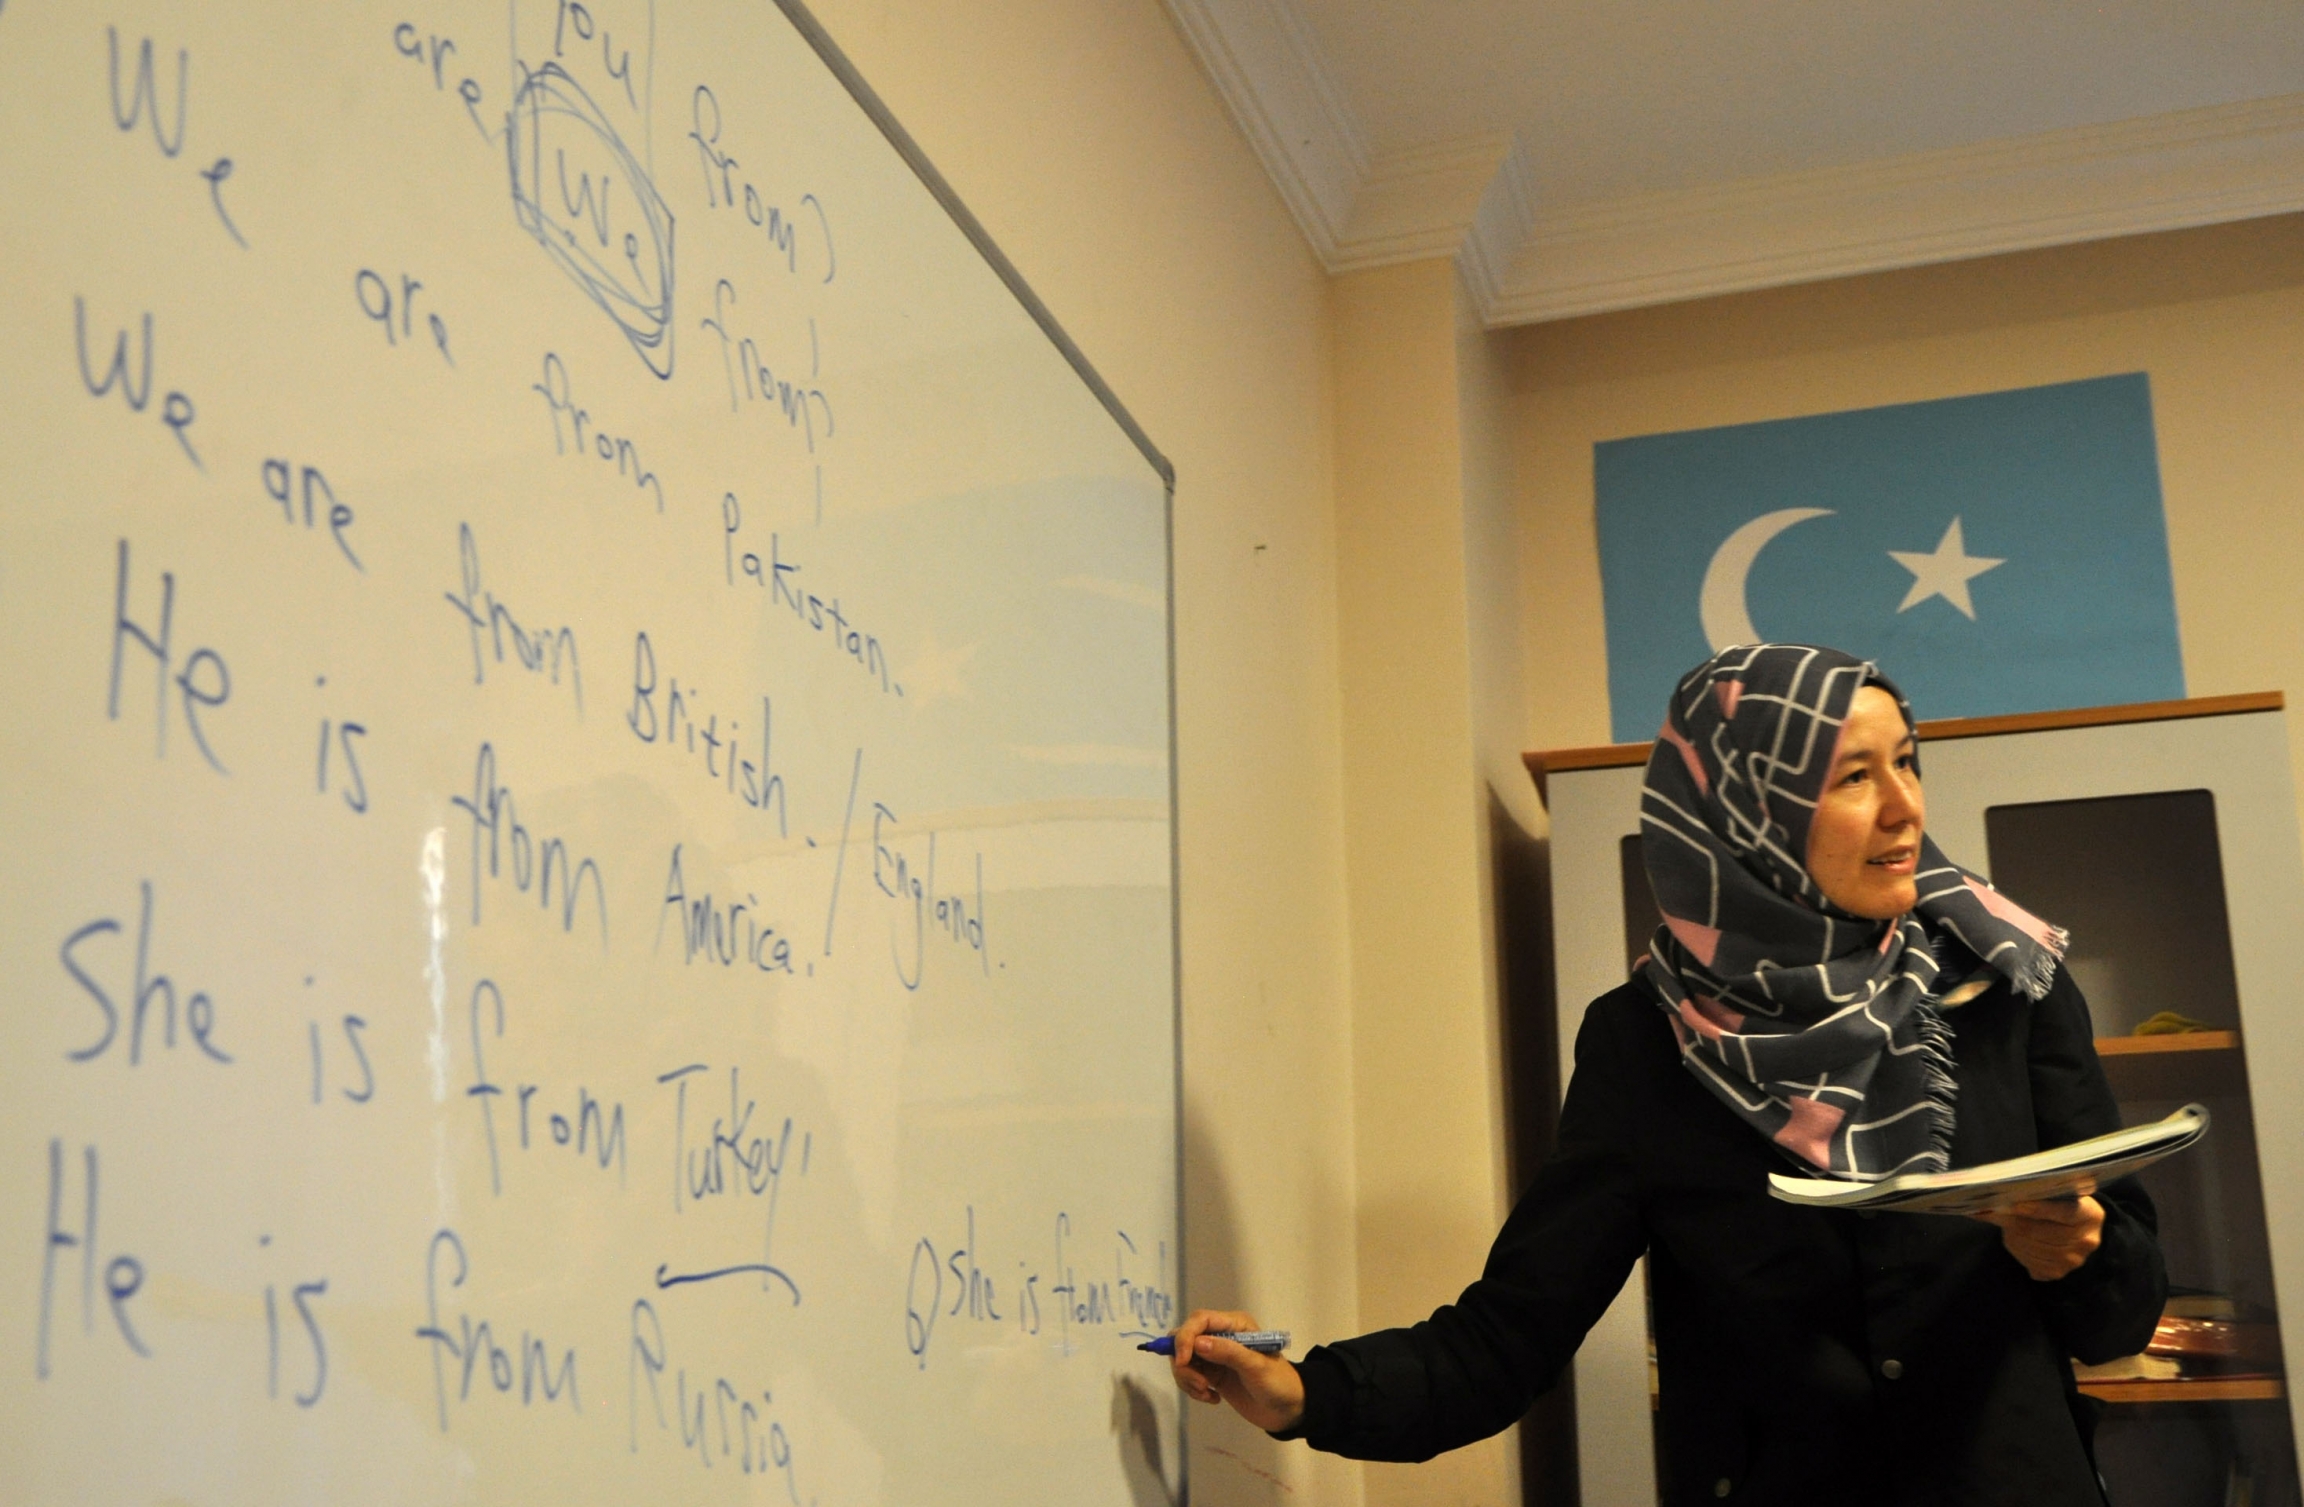 are you from?
We from?
We are from Pakistan.
We are from British. / England.
He is from America.
She is from Turkey.
He is from Russia
6) She is from French